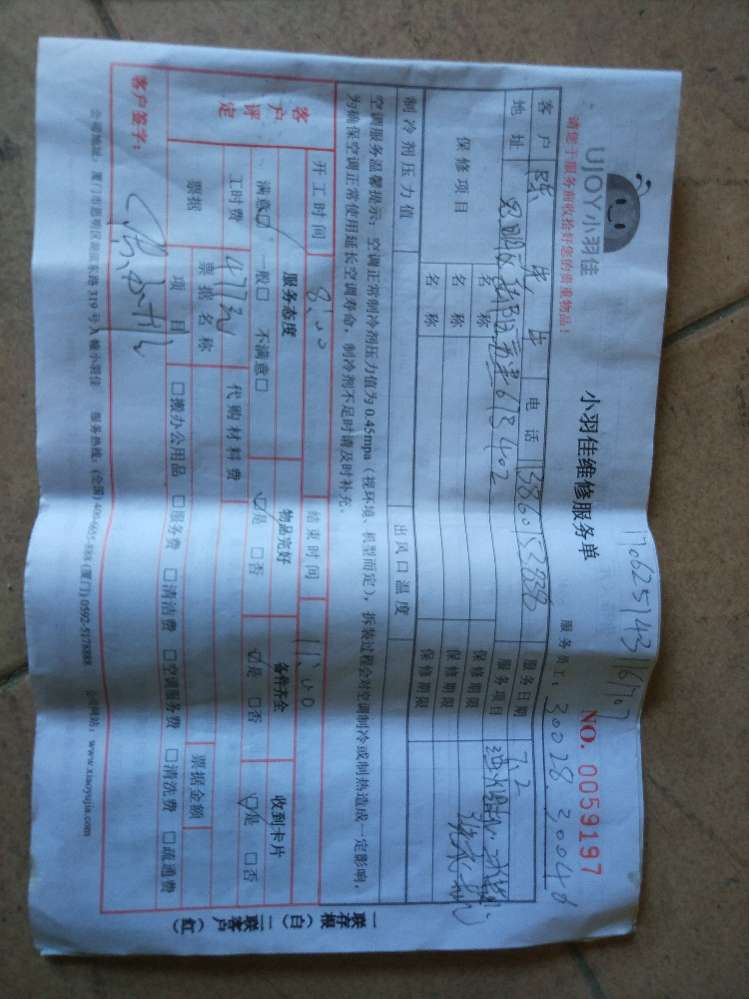 UJOY小羽佳
请您于服务前收拾好您的贵重物品!
小羽佳维修服务单
NO. 0059197
服务员工: 30028. 30048
客户
电话
服务日期 7.2
地址
服务项目
保修项目
名称
保修期限
名称
保修期限
名称
保修期限
制冷剂压力值
出风口温度
空调服务温馨提示:空调正常制冷剂压力值为0.45mpa(视环境、机型而定),拆装过程会对空调制冷或制热造成一定影响,
为确保空调正常使用延长空调寿命,制冷剂不足时请及时补充。
开工时间 8:00 结束时间 11:00
客户评定
服务态度 物品完好 备件齐全 收到卡片
满意□ 一般□ 不满意□ □是 □否 □是 □否 □是 □否
工时费 477元 代购材料费
票据
票据名称
票据金额
项目 □搬办公用品 □服务费 □清洁费 □空调服务费 □清洗费 □疏通费
客户签字:
公司地址:厦门市思明区湖滨东路319号A 小羽佳 服务热线:(全国)400-665-8888(厦门)0592-5178888 公司网站:www.xiaoyujia.com
一联存根(白) 二联客户(红)